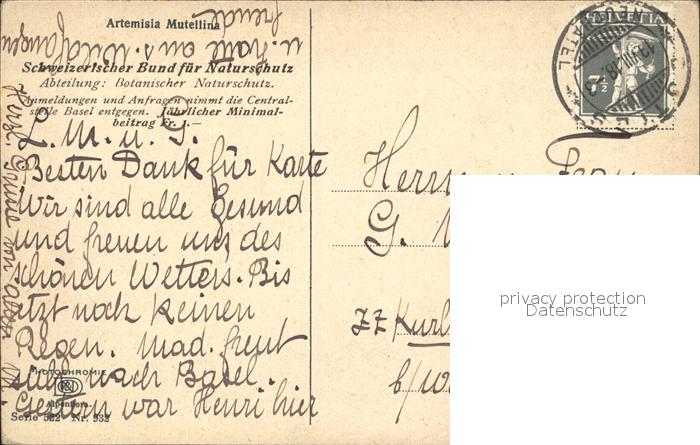 Artemisia Mutellina
Schweizerischer Bund für Naturschutz
Abteilung: Botanischer Naturschutz.
Anmeldungen und Anfragen nimmt die Central-
stelle Basel entgegen. Jährlicher Minimal-
beitrag Fr. 1.—
L. M. u. G.
Besten Dank für Karte
Wir sind alle Gesund
und freuen uns des
schönen Wetters. Bis
jetzt noch keinen
Regen. Mad. freut
sich nach Basel.
Gestern war Henri hier
PHOTOCHROMIE
Alpenflora.
Serie 532 Nr. 532
HELVETIA
7½
Herrn u. Frau
G.
77 Kurl
b/W
privacy protection
Datenschutz